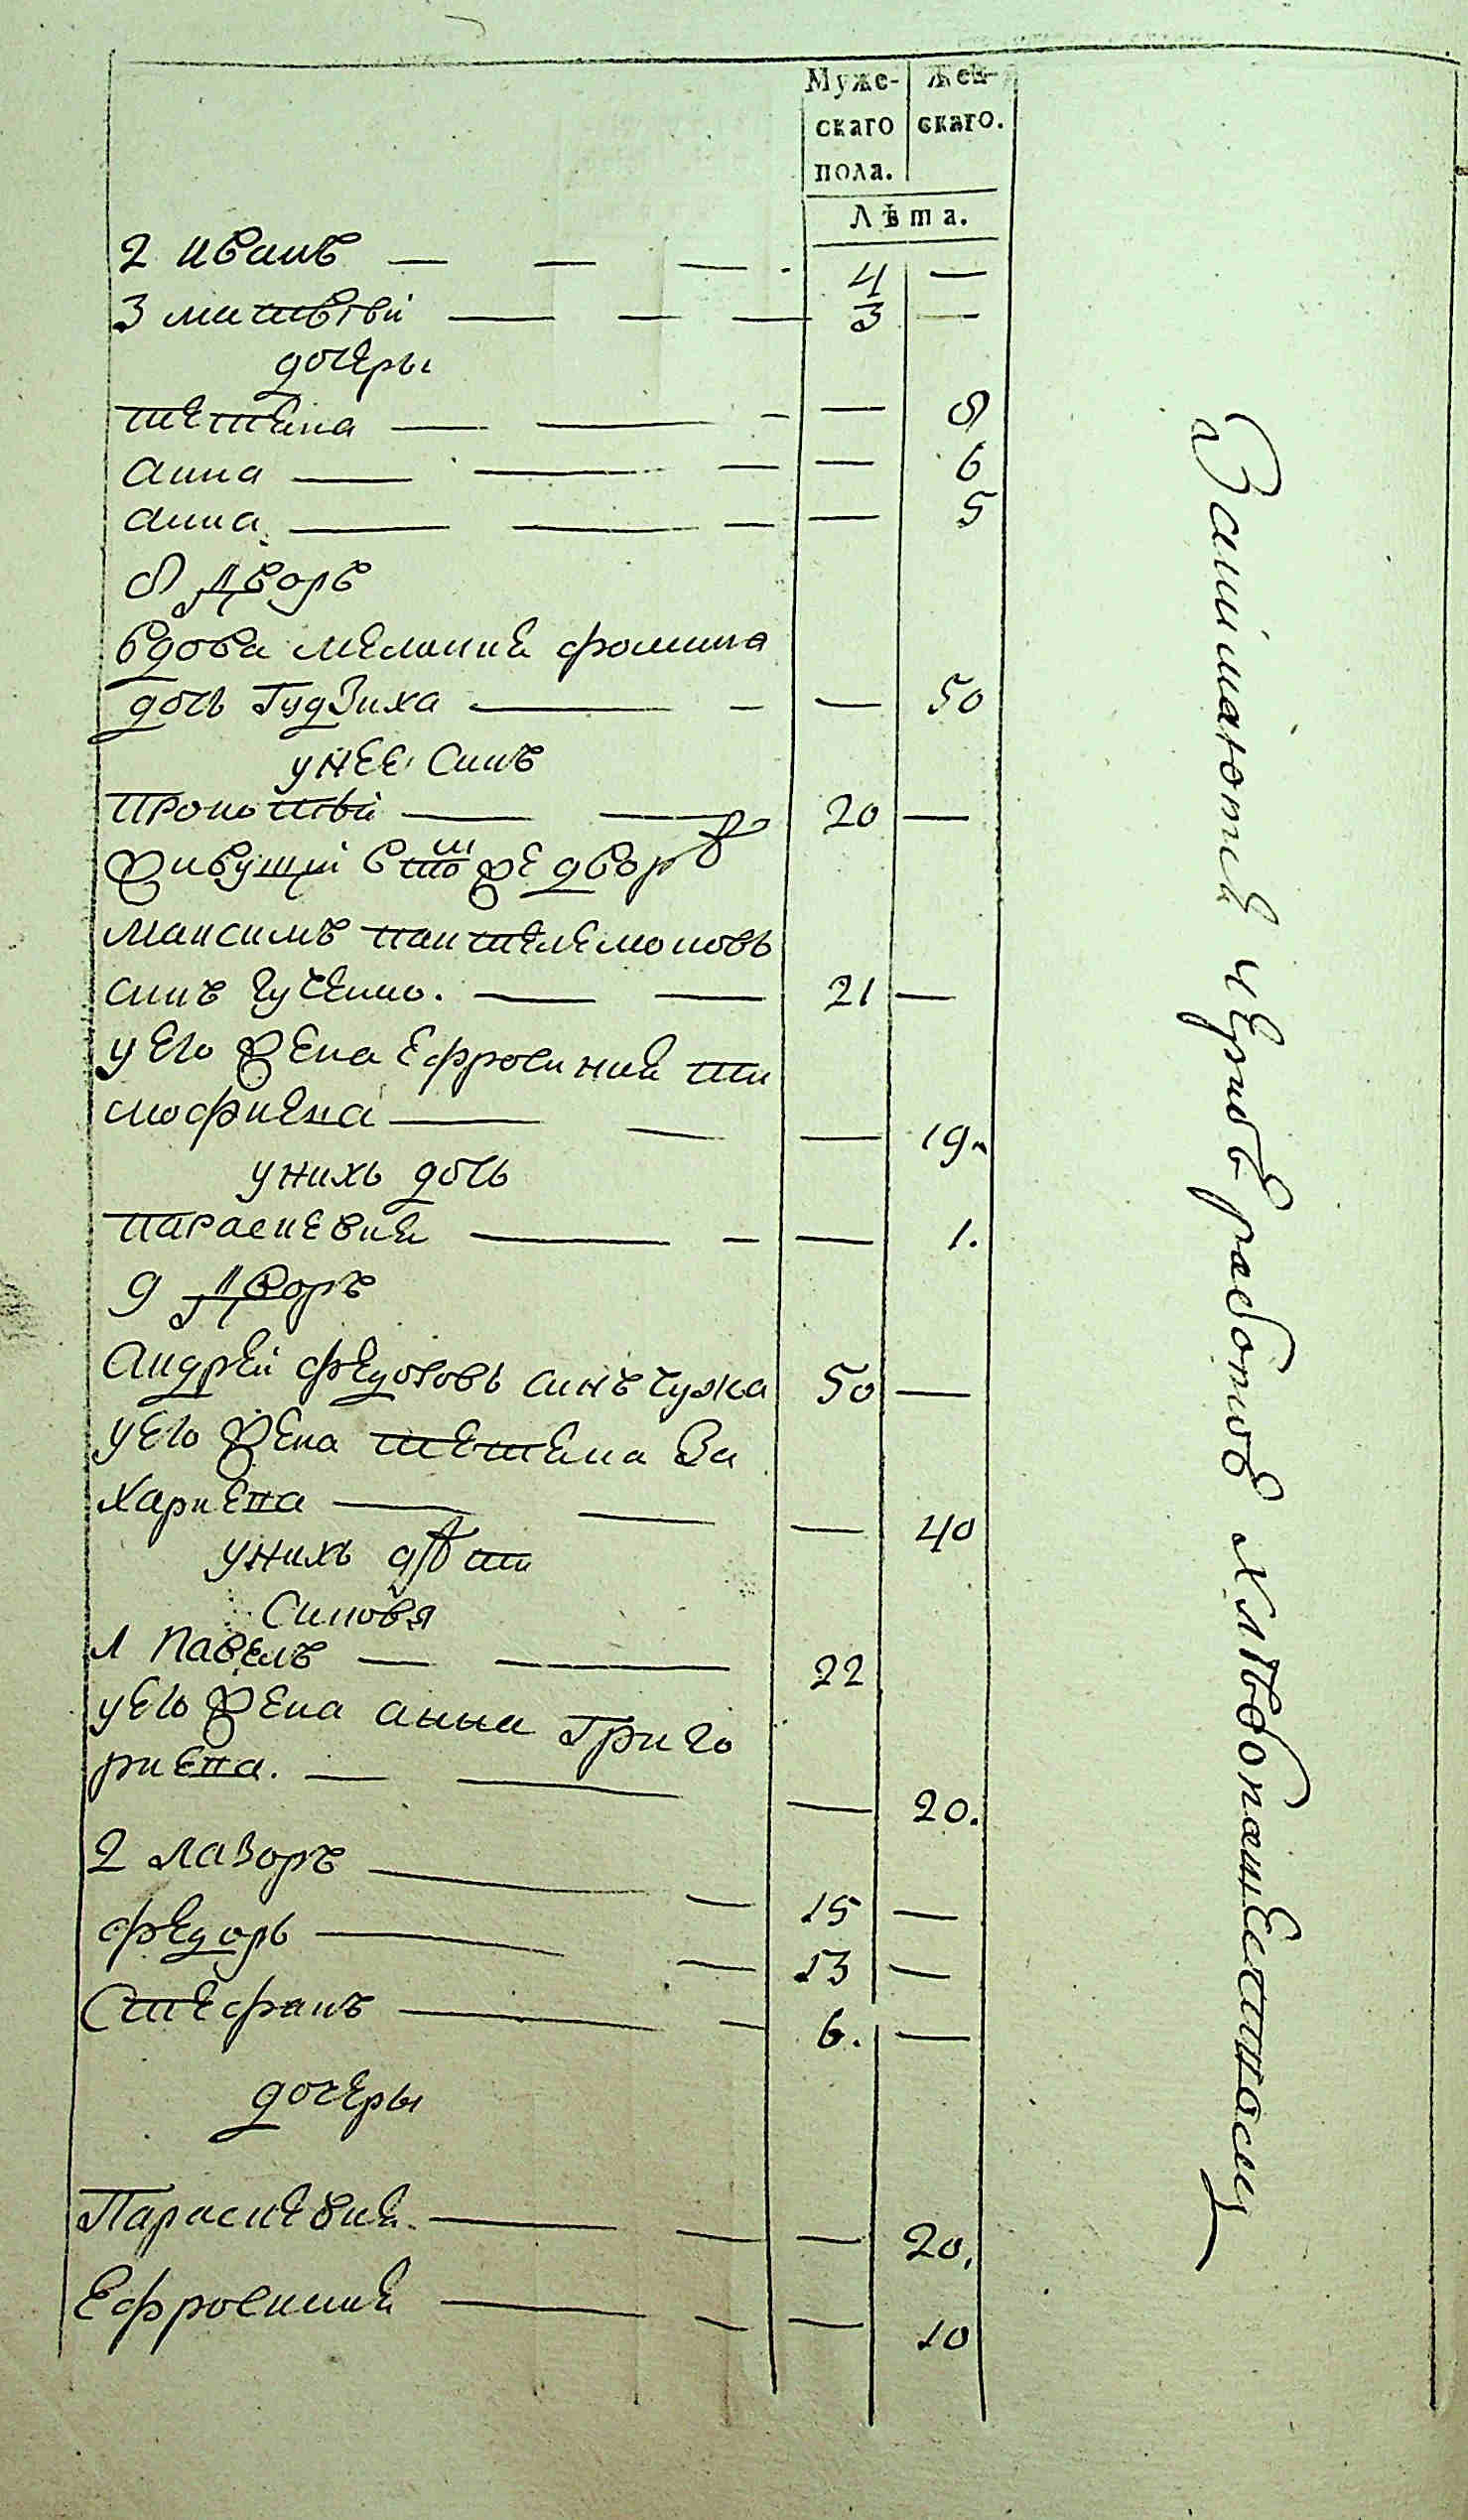 Муже- Жен-
скаго скаго.
пола.
Лѣта.
2 иванъ — — — 4 —
3 матвѣй — — — 3 —
дочеры
тетяна — — — — 8
анна — — — — 6
анна — — — — 5
8 дворъ
вдова меланія фомина
дочь Гудзиха — — — 50
у нее синъ
прокопій — — 20 —
живущій в томже дворѣ
максимъ пантелемоновъ
синъ гученко. — — 21 —
у его жена ефросинія ти
мофиена — — — 19.
у нихъ дочь
параскевия — — — 1.
9 дворъ
андрей федотовъ синъ чужа 50 —
у его жена тетяна За
хариена — — — 40
у нихъ дѣти
Синовя
1 павелъ — — 22
у его жена анна Григо
риена. — — — 20.
2 лазоръ — — 15 —
федоръ — — 13 —
Стефанъ — — 6. —
дочеры
Параскевия — — — 20.
Ефросиния — — — 10
Занимаются чернов работов хлѣбопашественостъ